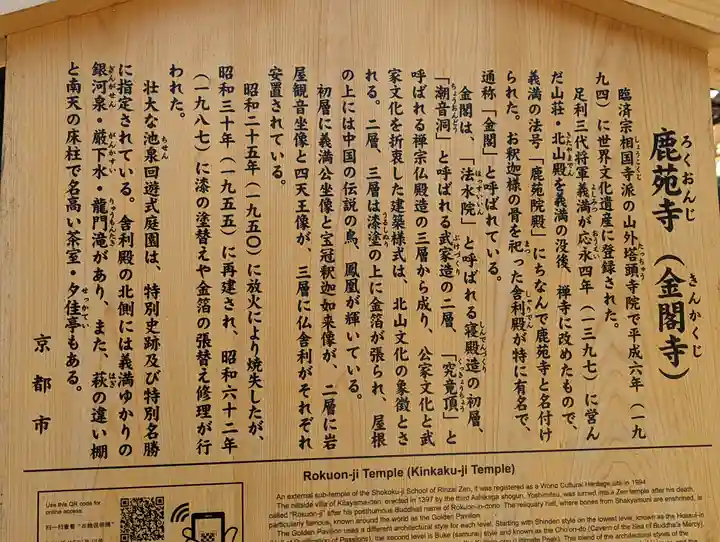 鹿苑寺（金閣寺）
ろくおんじ きんかくじ
臨済宗相国寺派の山外塔頭寺院で平成六年（一九
九四）に世界文化遺産に登録された。
足利三代将軍義満が応永四年（一三九七）に営ん
だ山荘・北山殿を義満の没後、禅寺に改めたもので、
義満の法号「鹿苑院殿」にちなんで鹿苑寺と名付け
られた。お釈迦様の骨を祀った舎利殿が特に有名で、
通称「金閣」と呼ばれている。
金閣は、「法水院」と呼ばれる寝殿造の初層、
「潮音洞」と呼ばれる武家造の二層、「究竟頂」と
呼ばれる禅宗仏殿造の三層から成り、公家文化と武
家文化を折衷した建築様式は、北山文化の象徴とさ
れる。二層、三層は漆塗の上に金箔が張られ、屋根
の上には中国の伝説の鳥、鳳凰が輝いている。
初層に義満公坐像と宝冠釈迦如来像が、二層に岩
屋観音坐像と四天王像が、三層に仏舎利がそれぞれ
安置されている。
昭和二十五年（一九五〇）に放火により焼失したが、
昭和三十年（一九五五）に再建され、昭和六十二年
（一九八七）に漆の塗替えや金箔の張替え修理が行
われた。
壮大な池泉回遊式庭園は、特別史跡及び特別名勝
に指定されている。舎利殿の北側には義満ゆかりの
銀河泉・巌下水・龍門滝があり、また、萩の違い棚
と南天の床柱で名高い茶室・夕佳亭もある。
京都市
Rokuon-ji Temple (Kinkaku-ji Temple)
An external sub-temple of the Shokoku-ji School of Rinzai Zen, it was registered as a World Cultural Heritage site in 1994.
The hillside villa of Kitayama-den, erected in 1397 by the third Ashikaga shogun, Yoshimitsu, was turned into a Zen temple after his death,
called "Rokuon-ji" after his posthumous Buddhist name of Rokuon-in-dono. The reliquary hall, where bones from Shakyamuni are enshrined, is
particularly famous, known around the world as the Golden Pavilion.
The Golden Pavilion uses a different architectural style for each level. Starting with Shinden style on the lowest level, known as the Hosui-in
of Passions), the second level is Buke (samurai) style and known as the Cho'on-do (Cavern of the Sea of Buddha's Mercy),
This blend of the architectural styles of the
Use this QR code for
online access.